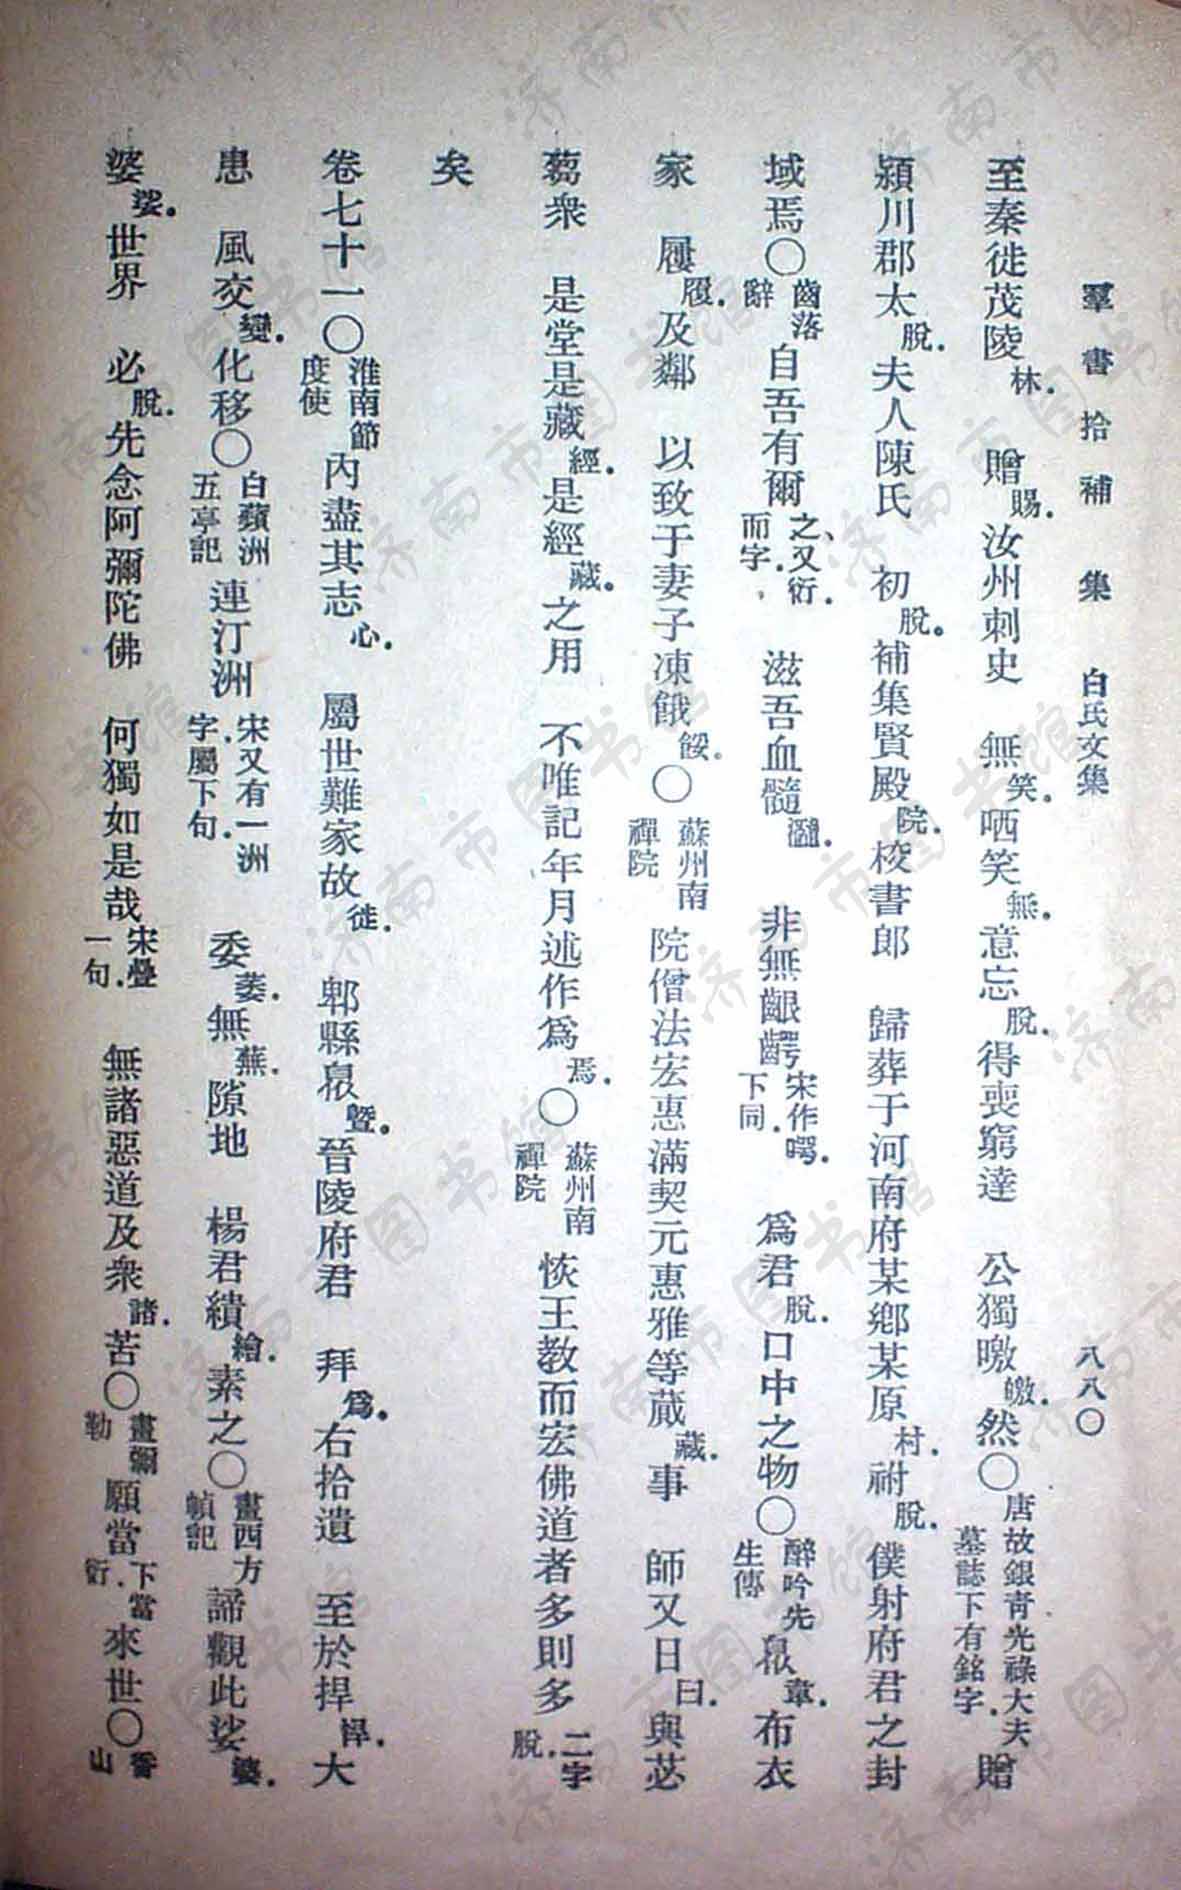 羣書拾補集 白氏文集 八八〇
至秦徙茂陵林。 贈賜。汝州刺史 無笑。哂笑無。意忘脫。得喪窮達 公獨曒皦。然〇唐故銀青光祿大夫墓誌下有銘字。贈
潁川郡太脫。夫人陳氏 初脫。補集賢殿院。校書郎 歸葬于河南府某鄉某原村。祔脫。僕射府君之封
域焉〇齒落辭自吾有爾之、又衍而字。 滋吾血髓瀡。 非無齦齶宋作㗁。下同。 為君脫。口中之物〇醉吟先生傳 韋。布衣
家 屨履。及鄰 以致于妻子凍餓餒。〇蘇州南禪院 院僧法宏惠滿契元惠雅等蕆藏。事 師又日曰。與苾
蒭衆 是堂是藏經。是經藏。之用 不唯記年月述作爲焉。〇蘇州南禪院 恢王教而宏佛道者多則多二字脫。
矣
卷七十一〇淮南節度使內盡其志心。 屬世難家故徙。 郫縣暨。晉陵府君 拜爲。右拾遺 至於捍悍。大
患 風交變。化移〇白蘋洲五亭記 連汀洲 宋又有一洲字。屬下句。 委萎。無蕪。隙地 楊君繢繪。素之〇畫西方幀記 諦觀此娑婆。
婆娑。世界 必脫。先念阿彌陀佛 何獨如是哉宋疊一句。 無諸惡道及衆諸。苦〇畫彌勒 願當下當衍。來世〇香山
济南市图书馆